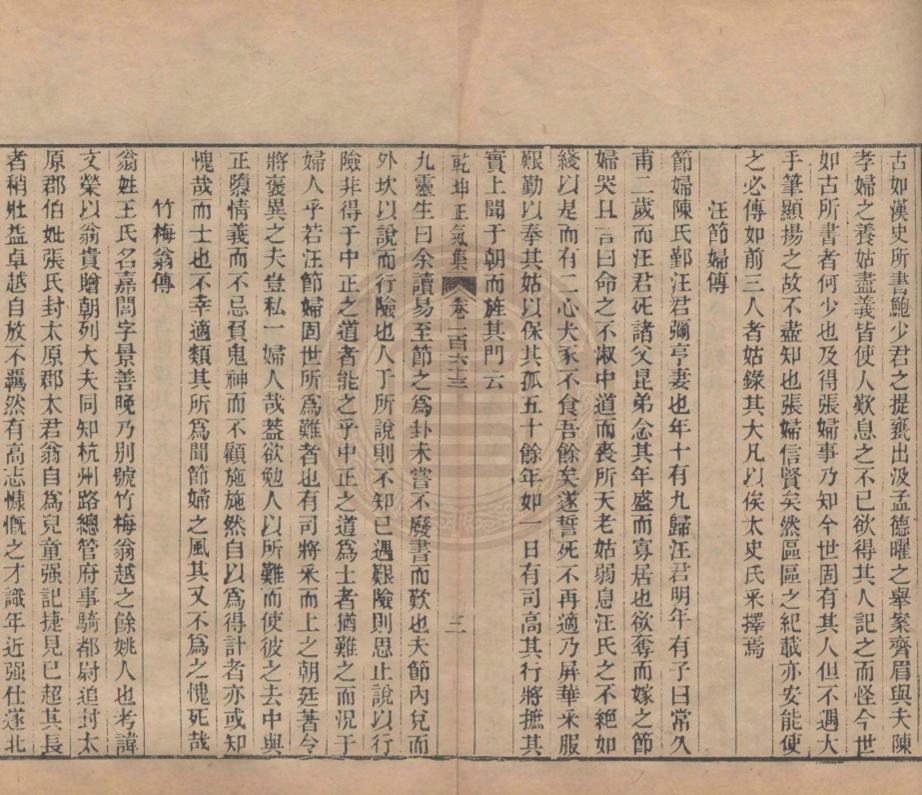 古如漢史所書鮑少君之提甕出汲孟德曜之舉案齊眉與夫陳
孝婦之養姑盡義皆使人歎息之不已欲得其人記之而怪今世
如古所書者何少也及得張婦事乃知今世固有其人但不遇大
手筆顯揚之故不盡知也張婦信賢矣然區區之紀載亦安能使
之必傳如前三人者姑錄其大凡以俟太史氏采擇焉
汪節婦傳
節婦陳氏鄞汪君彌亨妻也年十有九歸汪君明年有子曰常久
甫二歲而汪君死諸父昆弟念其年盛而寡居也欲奪而嫁之節
婦哭且言曰命之不淑中道而喪所天老姑弱息汪氏之不絕如
綫以是而有二心犬豕不食吾餘矣遂誓死不再適乃屏華采服
艱勤以奉其姑以保其孤五十餘年如一日有司高其行將摭其
實上聞于朝而旌其門云
乾坤正氣集 卷二百六十三 三
九靈生曰余讀易至節之爲卦未嘗不廢書而歎也夫節內兌而
外坎以說而行險也人于所說則不知已遇艱險則思止說以行
險非得于中正之道者能之乎中正之道爲士者猶難之而況于
婦人乎若汪節婦固世所爲難者也有司將采而上之朝廷著令
將襃異之夫豈私一婦人哉蓋欲勉人以所難而使彼之去中與
正墮情義而不忌負鬼神而不顧施施然自以爲得計者亦或知
愧哉而士也不幸適類其所爲聞節婦之風其又不爲之愧死哉
竹梅翁傳
翁姓王氏名嘉閭字景善晚乃別號竹梅翁越之餘姚人也考諱
文榮以翁貴贈朝列大夫同知杭州路總管府事騎都尉追封太
原郡伯妣張氏封太原郡太君翁自爲兒童强記捷見已超其長
者稍壯益卓越自放不羈然有高志慷慨之才識年近强仕遂北